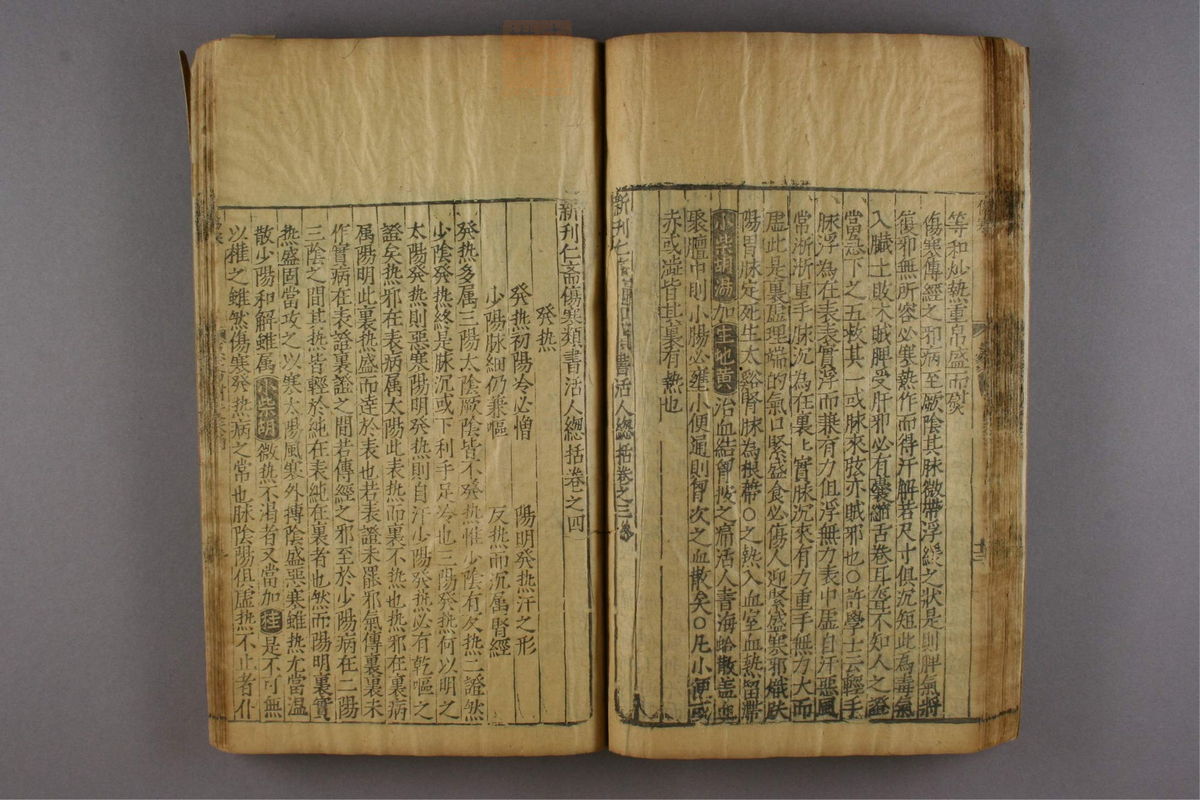 等和灿熱重帛盛而熨
傷寒傳經之邪病至厥陰其脉微帶浮緩之狀是則脾氣將
復邪無所容必寒熱作而得汗解若尺寸俱沉短此為毒氣
入臟土敗木賊脾受肝邪必有囊縮舌卷耳聾不知人之證
當急下之五救其一或脉來弦亦賊邪也○許學士云輕手
脉浮為在表表實浮而兼有力但浮無力表中虛自汗惡風
常淅淅重手脉沉為在裏裏實脉沉來有力重手無力大而
虛此是裏虛理端的氣口緊盛食必傷人迎緊盛寒邪熾趺
陽胃脉定死生太谿腎脉為根蔕○之熱入血室血熱留滯
小柴胡湯加生地黃治血結胷痰之痛活人書海蛤散盖血
聚膻中則小腸必壅小便通則胷次之血散矣○凡小便或
赤或澁皆其裏有熱也
新刊仁 書活人總括卷之三
新刊仁斎傷寒類書活人總括卷之四
發热
發热初陽冷必憎 陽明發热汗之形
少陽脉細仍兼嘔 反热而沉属腎經
發热多属三陽太陰厥陰皆不發热惟少陰有發热二證然
少陰發热終是脉沉或下利手足冷也三陽發热何以明之
太陽發热則惡寒陽明發热則自汗少陽發热必有乾嘔之
證矣热邪在表病属太陽此表热而裏不热也热邪在裏病
属陽明此裏热盛而達於表也若表證未罷邪氣傳裏裏未
作實病在表證裏證之間若傳經之邪至於少陽病在二陽
三陰之間其热皆輕於純在表純在裏者也然而陽明裏實
热盛固當攻之以寒太陽風寒外搏陰盛惡寒雖热尤當温
散少陽和解雖属小柴胡微热不渴者又當加桂是不可無
以權之雖然傷寒發热病之常也脉陰陽俱虛热不止者仆